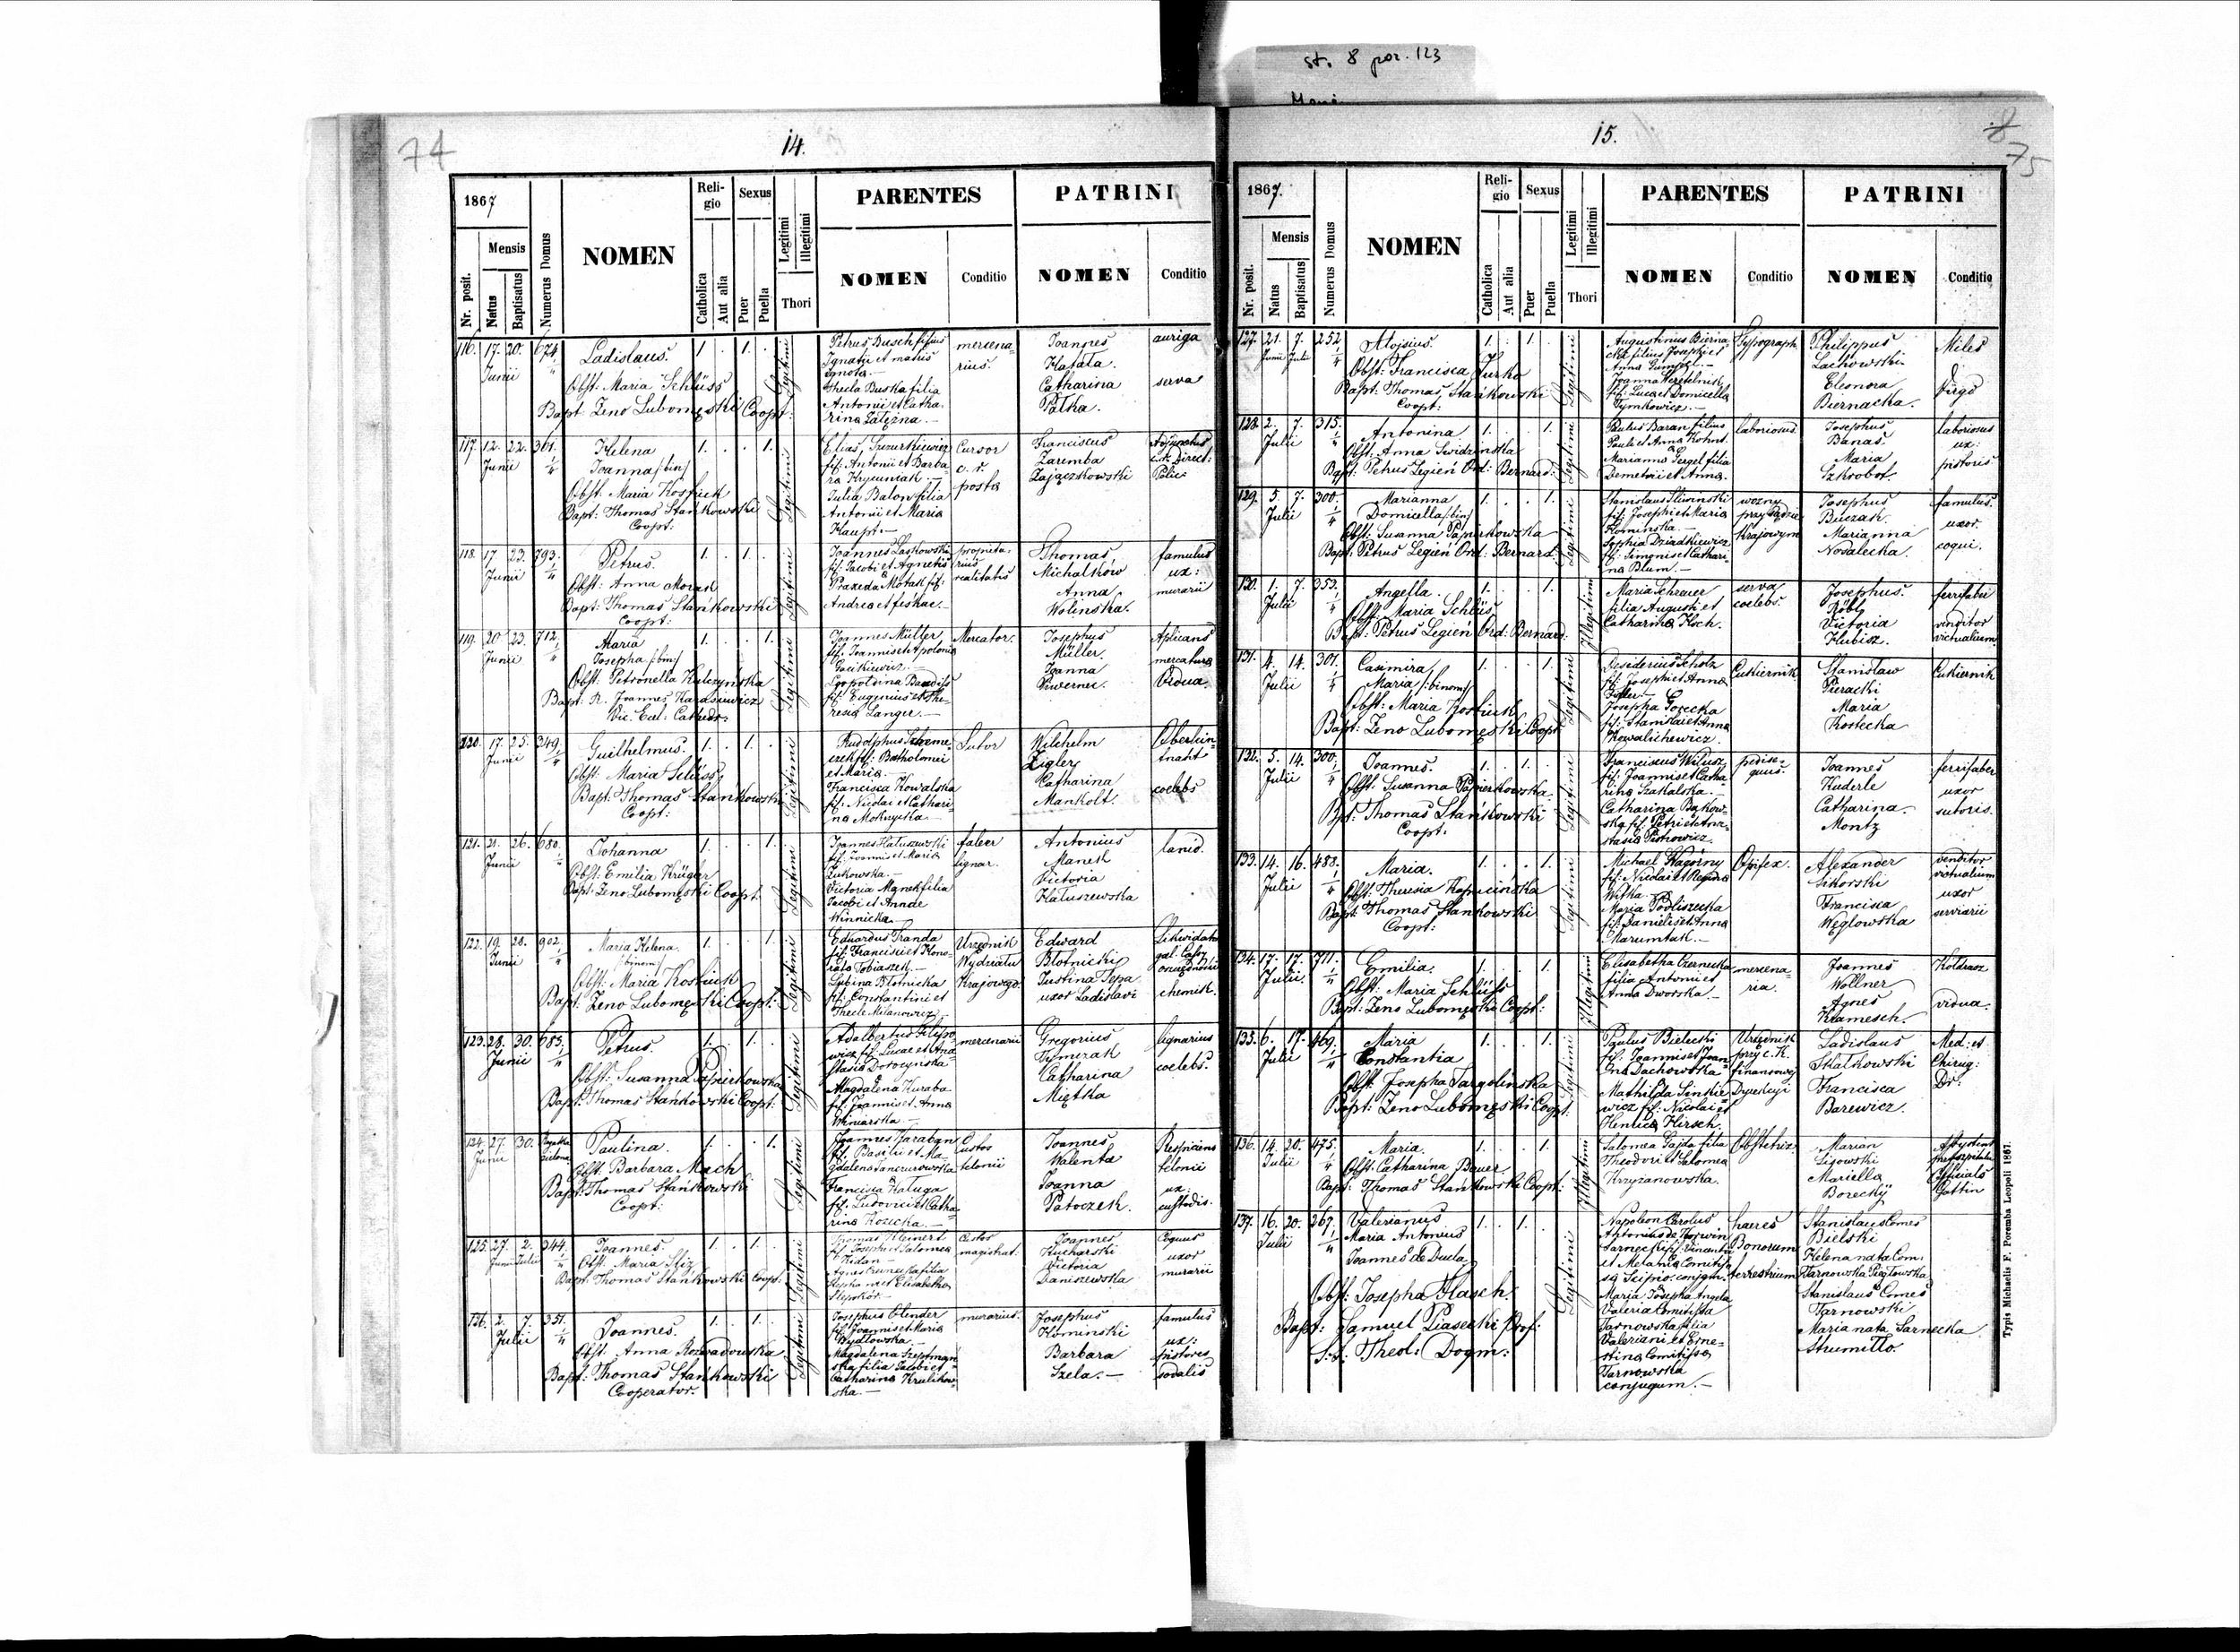 st. 8 poz. 123
74
14.
1867
Nr. posit.
Mensis
Natus
Baptisatus
Numerus Domus
NOMEN
Religio
Catholica
Aut alia
Sexus
Puer
Puella
Legitimi
Illegitimi
Thori
PARENTES
NOMEN
Conditio
PATRINI
NOMEN
Conditio
116. 17. 20. 674.
Junii
Ladislaus.
Obst: Maria Schlüss
Bapt: Zeno Lubomęski Coopt:
Legitimi
Petrus Busch filius
Ignatii et matris
ignota.
Thecla Buska filia
Antonii et Catha-
rina Zalezna.
mercena-
rius.
Joannes
Katala.
Catharina
Patka.
auriga
serva
117. 12. 22. 361.
Junii
Helena
Joanna /:bin:/
Obst: Maria Kostiuk
Bapt: Thomas Stańkowski
Coopt:
Legitimi
Elias
fil: Antonii et Barba-
ra
Julia Balon filia
Antonii et Maria
Kaupt.
Cursor
c. r.
posta
Franciscus
Zaremba
Zajączkowski
118. 17. 23. 793.
Junii
Petrus.
Obst: Anna Morak
Bapt: Thomas Stańkowski
Coopt:
Legitimi
Joannes Laskowski
fil: Jacobi et Agnetis
Praxeda Motak fil:
proprieta-
rius
realitatis
Thomas
Michalków
Anna
Wolenska.
famulus
ux:
murarii
119. 20. 23. 712.
Junii
Maria
Josepha /:bin:/
Obst: Petronella Kulczyńska
Bapt: R. Joannes Karasiewicz
Vic. Eccl: Cathedr.
Legitimi
Joannes Müller
fil: Joannis et Apolonia
Leopoldina
fil: Eugenius et The-
resia Langer.
Mercator.
Josephus
Müller.
Joanna
Vidua.
120. 17. 25. 349.
Junii
Guilhelmus.
Obst: Maria Schlüss
Bapt: Thomas Stańkowski
Coopt:
Legitimi
Rudolphus
fil: Bartholomei
et Maria.
Francisca Kowalska
fil: Nicolai et Cathari-
na Mokrycka.
Sutor
Wilchelm
Zigler
Catharina
Mankolt.
coelebs
121. 21. 26. 680.
Junii
Johanna
Obst: Emilia Krüger
Bapt: Zeno Lubomęski Coopt:
Legitimi
Joannes Katuszewski
fil: Joannis et Maria
Zukowska.
Victoria Manek filia
Jacobi et Annae
Winnicka.
faber
lignar.
Antonius
Manek
Victoria
Katuszewska
lanio.
122. 19. 28. 902.
Junii
Maria Helena.
/:binom:/
Obst: Maria Kostiuk
Bapt: Zeno Lubomęski Coopt:
Legitimi
Eduardus Franda
fil: Francisci et Hono-
rata Tobiaszek.
Sabina Błotnicka
fil: Constantini et
Thecle Milanowicz
Urzędnik
Wydziału
Krajowego.
Edward
Błotnicki
Justina Tepa
uxor Ladislavi
chemik.
123. 28. 30. 685.
Junii
Petrus.
Obst: Susanna Papierkowska
Bapt: Thomas Stańkowski Coopt:
Legitimi
Adalbertus Filipo-
wicz fil: Lucae et Ana-
stasia Dorozynska
Magdalena Kuraba-
fil: Joannis et Anna
Winiarska.
mercenarii
Gregorius
Tymczak
Catharina
Miętka
lignarius
coelebs.
124. 27. 30.
Junii
Paulina.
Obst: Barbara Mach
Bapt: Thomas Stańkowski
Coopt:
Legitimi
Joannes Haraban
fil: Basilii et Ma-
gdalena
Francisca Kaluga
fil: Ludovici et Catha-
rina Kozicka.
Custos
telonii
Joannes
Walenta
Joanna
Patoczek.
Respiciens
telonii
ux.
custodis.
125. 27. 2. 344.
Junii Julii
Joannes.
Obst: Maria Stiz
Bapt: Thomas Stańkowski Coopt:
Legitimi
Thomas Kleinert
fil: Josephi et Salomea
Kidan
Custos
magistrat.
Joannes
Kucharski
Victoria
Daniszewska
Coquus
uxor
murarii
126. 2. 7. 351.
Julii
Joannes.
Obst: Anna Rozwadowska
Bapt: Thomas Stańkowski
Cooperator.
Legitimi
Josephus Olender
fil: Joannis et Maria
Magdalena Szeptman-
ska filia Jacobi et
Catharina Krulikow-
ska.
murarius.
Josephus
Kominski
Barbara
Szela.
famulus
ux:
pistores
sodalis
8
75
15.
1867.
Nr. posit.
Mensis
Natus
Baptisatus
Numerus Domus
NOMEN
Religio
Catholica
Aut alia
Sexus
Puer
Puella
Legitimi
Illegitimi
Thori
PARENTES
NOMEN
Conditio
PATRINI
NOMEN
Conditio
127. 21. 7. 252
Junii Julii
Aloisius.
Obst: Francisca Jurko
Bapt: Thomas Stańkowski
Coopt:
Legitimi
Augustinus Bierna-
cki filius Josephi et
Anna
Joanna Weretelnik
fil: Luca et Domicella
Tymkowicz.
Typograph
Philippus
Lachowski
Eleonora
Biernacka.
Miles
Virgo
128. 2. 7. 315.
Julii
Antonina
Obst: Anna Swidzinska
Bapt: Petrus Legień Ord: Bernard:
Legitimi
Paulus Baran filius
Pauli et Anna Kohut.
Marianna Gergel filia
Demetrii et Anna.
laboriosus
Josephus
Banas
Maria
Szkrobot.
laboriosus
ux:
pistoris
129. 5. 7. 300.
Julii
Marianna
Domicella /:bin:/
Obst: Susanna Papierkowska
Bapt: Petrus Legień Ord: Bernard:
Legitimi
Stanislaus Sliwinski
fil: Josephi et Maria
Kominska.
Sophia Dziadkiewicz
na Blum.
wozny
przy Sądzie
Krajowym
Josephus
Buczak.
Marianna
Nowalecka.
famulus.
uxor.
coqui.
130. 1. 7. 353.
Julii
Angella.
Obst: Maria Schlüs
Bapt: Petrus Legień Ord: Bernard:
Illegitimi
Maria Schreuer
filia Augusti et
Catharina Koch.
serva
coelebs.
Josephus.
Röbl
Victoria
Hubisz.
ferrifaber
venditor
victualium
131. 4. 14. 301.
Julii
Casimira
Maria /:binom:/
Obst: Maria Kostiuk
Bapt: Zeno Lubomęski Coopt:
Legitimi
Desiderius Scholz
fil: Josephi et Anna
Josepha Gorecka
fil: Stanislai et Anna
Kowalichewicz.
Cukiernik
Stanisław
Pieracki
Maria
Kostecka
Cukiernik
132. 5. 14. 300.
Julii
Joannes.
Obst: Susanna Papierkowska.
Bpt: Thomas Stańkowski
Coopt:
Legitimi
Franciscus Wilusz
fil: Joannis et Catha-
rina Szakalska.
Catharina Bąkow-
ska fil: Petri et Ana-
stasia Piotrowicz.
pedise-
quus.
Joannes
Kuderle
Catharina
Montz
ferrifaber
uxor
sutoris.
133. 14. 16. 488.
Julii
Maria.
Obst: Theresia Kapuscińska
Bapt: Thomas Stankowski
Coopt:
Legitimi
Michael Nagórny
fil: Nicolai et Regina
Witka.
Maria Podliszecka
fil: Danielis et Anna
Marumtak.
Opifex.
Alexander
Sikorski
Francisca
Węglowska
venditor
victualium
uxor
serviarii
134. 17. 17. 711.
Julii
Emilia.
Obst: Maria Schlüss
Bapt: Zeno Lubomęski Coopt:
Illegitimi
Elisabetha Czernecka
filia Antonii et
Anna Dworska.
mercena-
ria.
Joannes
Wollner
Agnes
Kramesch.
Kołdrasz
vidua.
135. 6. 17. 469.
Julii
Maria
Constantia
Obst: Josepha Targolinska
Bapt: Zeno Lubomęski Coopt.
Legitimi
Paulus Bielecki
fil: Joannis et Joan-
na Dachowska
Mathilda Sinkie-
wicz fil: Nicolai et
Henrica Hirsch.
Urzędnik
przy c. K.
finansowej
Dyrekcyi
Ladislaus
Skałkowski
Francisca
Barewicz.
Med: et
Chirug:
Dr.
136. 14. 20. 475.
Julii
Maria.
Obst: Catharina Bauer
Bapt: Thomas Stańkowski Coopt:
Illegitimi
Salomea Gajda filia
Theodori et Salomea
Krzyzanowska.
Obstetrix.
Marian
Lisowski
Mariella
Borecky
Assystent
przy szpitalu
Officials
Gattin
137. 16. 20. 267.
Julii
Valerianus
Maria Antonius
Joannes de Ducla
Obst: Josepha Flasch
Bapt: Samuel Piasecki Prof:
S:S: Theol: Dogm:
Legitimi
Napoleon Carolus
Antonius de Korwin
Sarnecki fil: Vincentii
et Melania Comitis-
sa Scipio. conjgm.
Maria Josepha Angela
Valeria Comitissa
Tarnowska filia
Valeriani et Erne-
stina Comitissa
Tarnowska
conjugum.
haeres
Bonorum
terrestrium
Stanislaus Comes
Bielski
Helena nata Com:
Tarnowska Piątowska
Stanislaus Comes
Tarnowski
Maria nata Sarnecka
Strumiłło
Typis Michaelis F. Poremba Leopoli 1867.